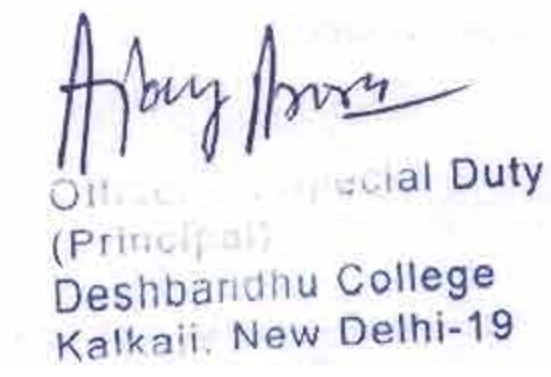 Ajay Arora
Officer Special Duty
(Principal)
Deshbandhu College
Kalkaji, New Delhi-19